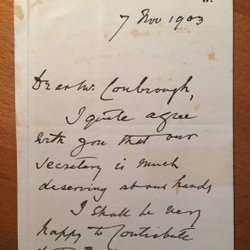 7 Nov 1903
Dear Mr. Conbrough,
I quite agree
with you that our
Secretary is much
deserving at our hands
I shall be very
happy to Contribute